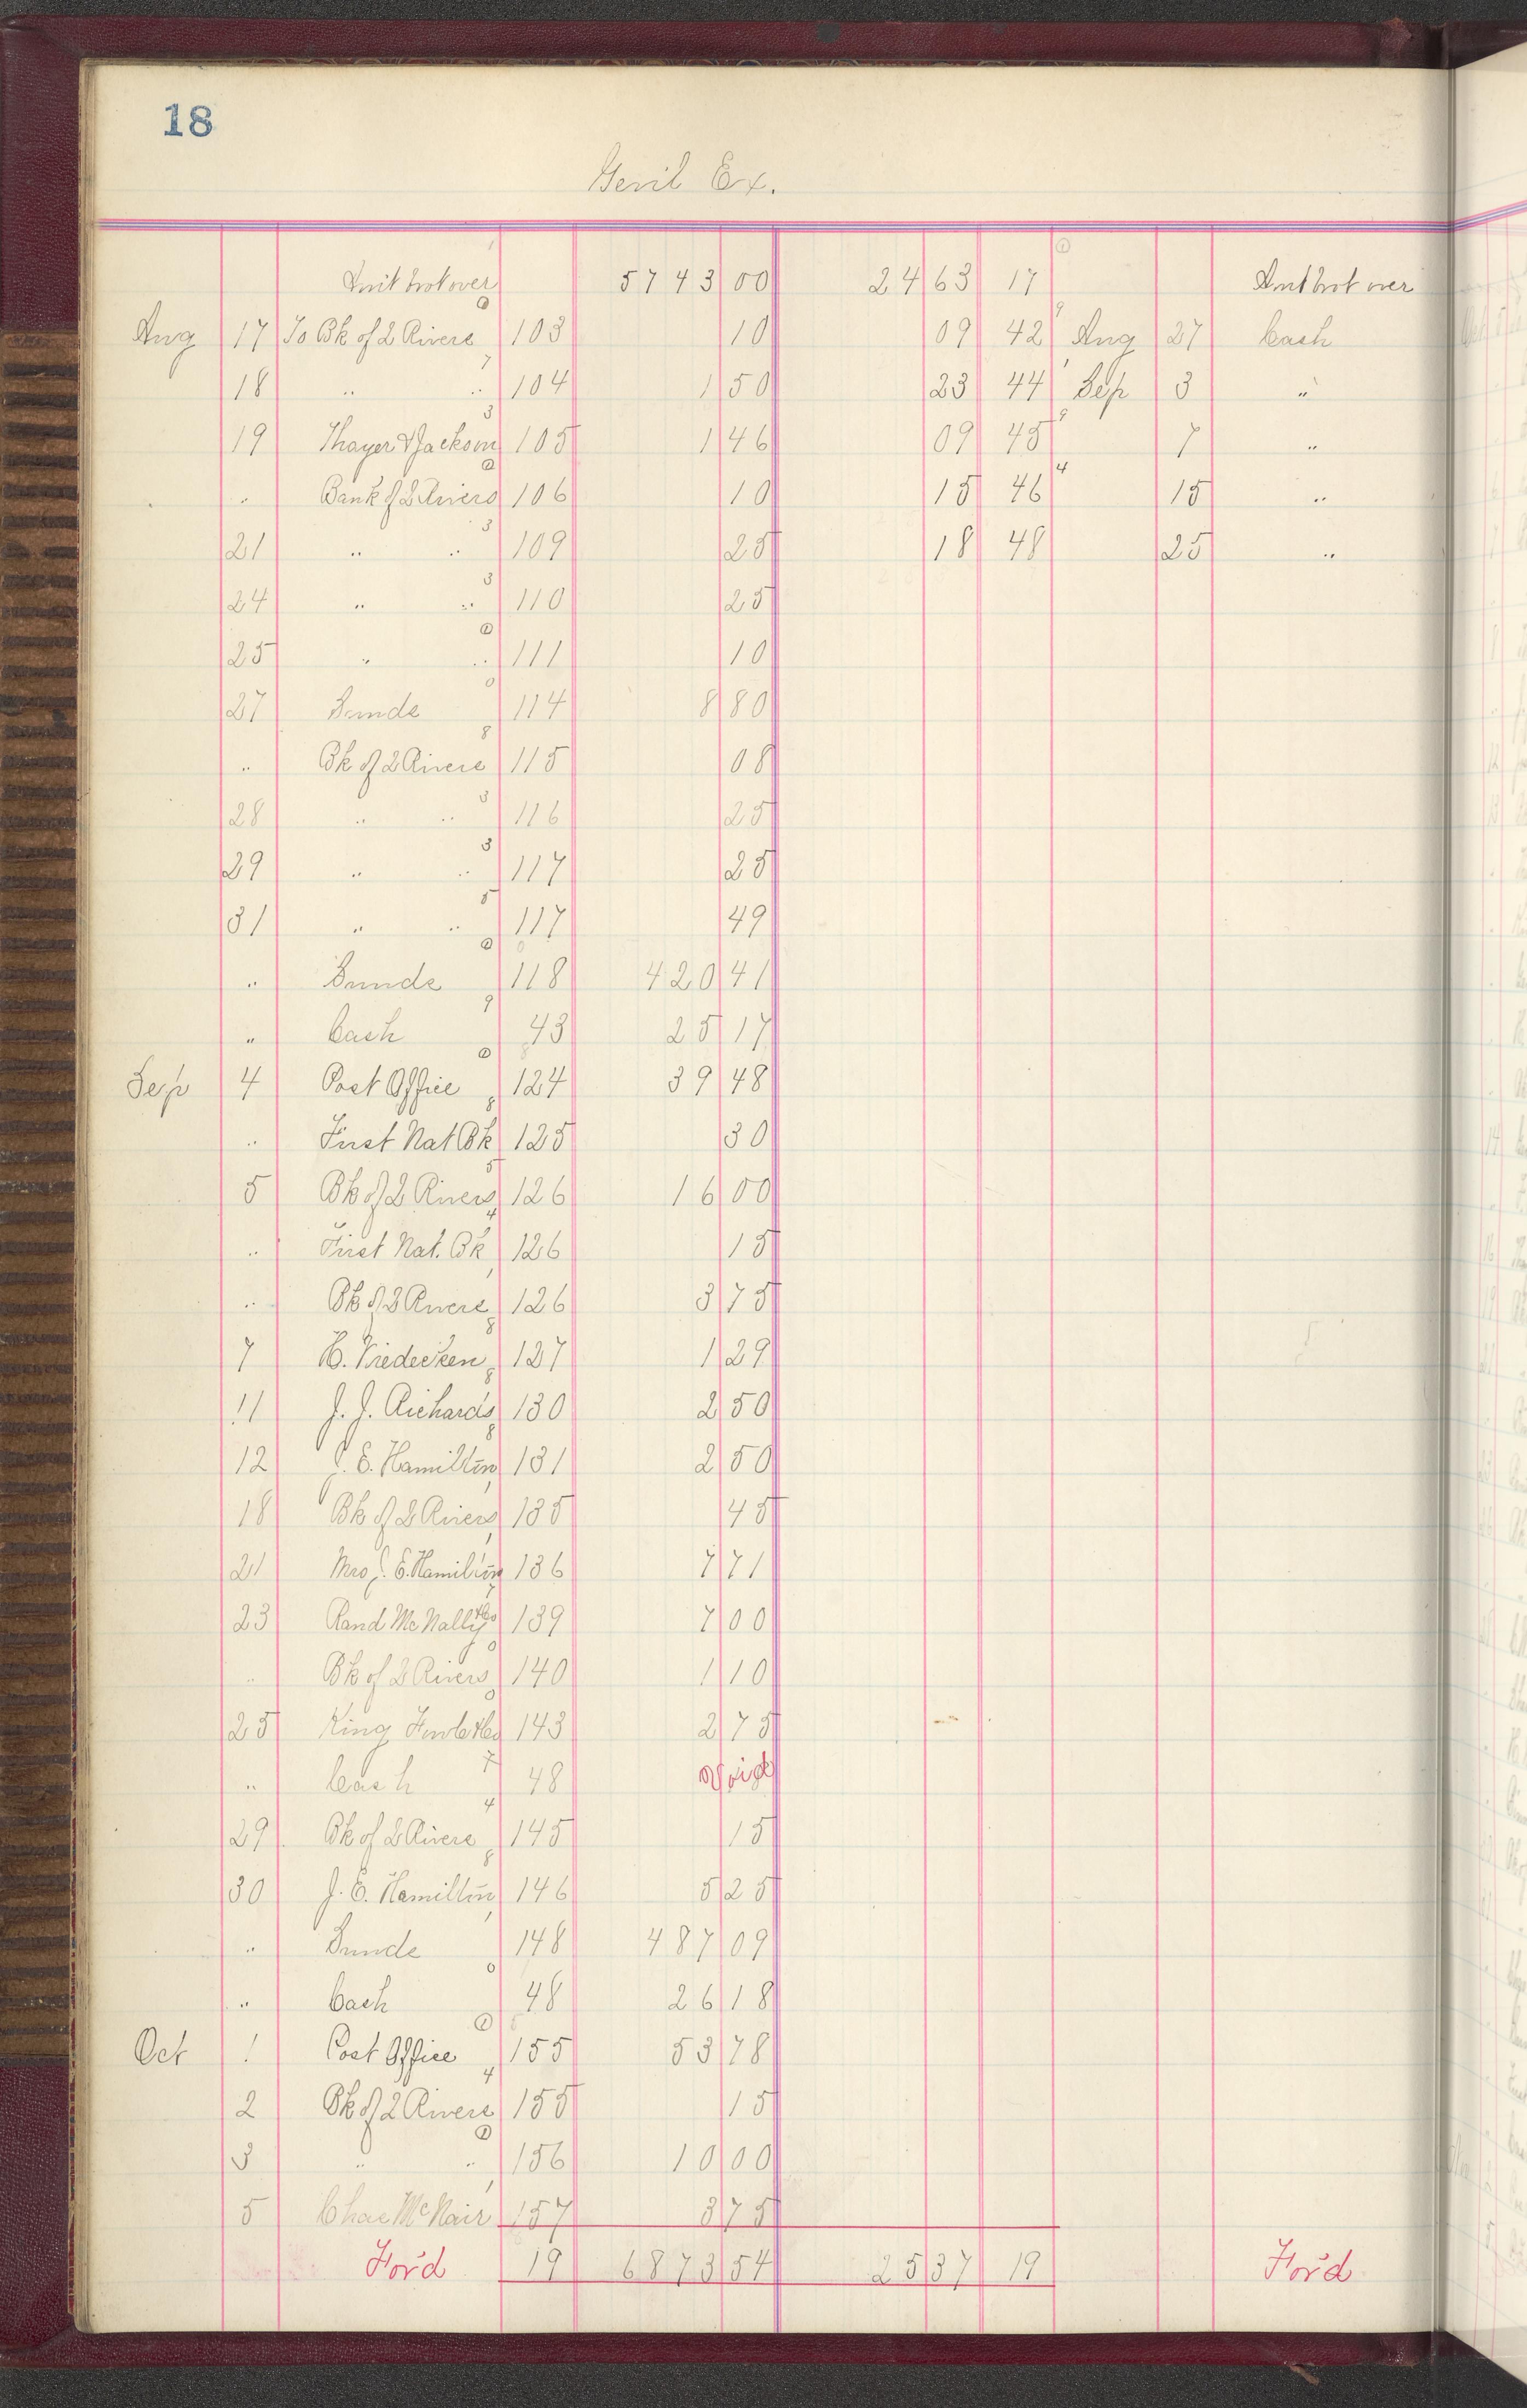 18
Genl Ex.
Amt brot over 5743 00 24 63 17 Amt brot over
Aug 17 To Bk of 2 Rivers 103 10 09 42 Aug 27 Cash
18 " " 104 1 50 23 44 Sep 3 "
19 Thayer & Jackson 105 1 46 09 45 7 "
" Bank of 2 Rivers 106 10 15 46 15 "
21 " " 109 25 18 48 25 "
24 " " 110 25
25 " " 111 10
27 Sunds 114 8 80
" Bk of 2 Rivers 115 08
28 " " 116 25
29 " " 117 25
31 " " 117 49
" Sunds 118 420 41
" Cash 43 25 17
Sep 4 Post Office 124 39 48
" First Nat Bk 125 30
5 Bk of 2 Rivers 126 16 00
" First Nat. Bk 126 15
" Bk of 2 Rivers 126 3 75
7 127 1 29
11 J. J. Richards 130 2 50
12 J. E. Hamilton 131 2 50
18 Bk of 2 Rivers 135 45
21 Mrs J. E. Hamilton 136 7 71
23 Rand McNally & Co 139 7 00
" Bk of 2 Rivers 140 1 10
25 King 143 2 75
" Cash 48 Void
29 Bk of 2 Rivers 145 15
30 J. E. Hamilton 146 5 25
" Sunds 148 487 09
" Cash 48 26 18
Oct 1 Post Office 155 53 78
2 Bk of 2 Rivers 155 15
3 " " 156 10 00
5 Chas McNair 157 3 75
For'd 19 6873 54 25 37 19 For'd